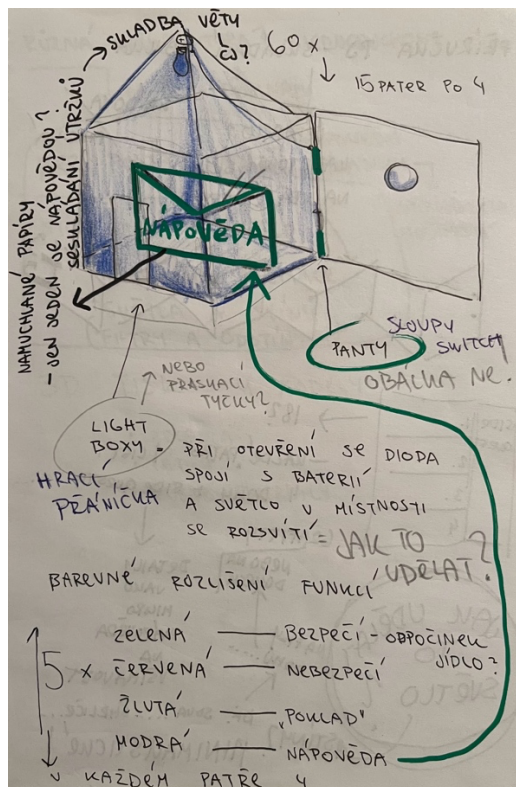 SKLADBA VĚTY
ČJ?
60 x
15 PATER PO 4
NAMUCHLANÉ PAPÍRY
- JEN JEDEN JE NÁPOVĚDOU?
SESKLÁDÁNÍ ÚTRŽKŮ
NÁPOVĚDA
PANTY
SLOUPY
SWITCH
OBÁLKA NE.
NEBO
PRASKACÍ
TYČKY?
LIGHT
BOXY
HRACÍ
PŘÁNÍČKA
- PŘI OTEVŘENÍ SE DIODA
SPOJÍ S BATERIÍ
A SVĚTLO V MÍSTNOSTI
SE ROZSVÍTÍ = JAK TO
UDĚLAT?
BAREVNÉ ROZLIŠENÍ FUNKCÍ
5 x
ZELENÁ — BEZPEČÍ - ODPOČINEK
JÍDLO?
ČERVENÁ — NEBEZPEČÍ
ŽLUTÁ — „POKLAD"
MODRÁ — NÁPOVĚDA
V KAŽDÉM PATŘE 4